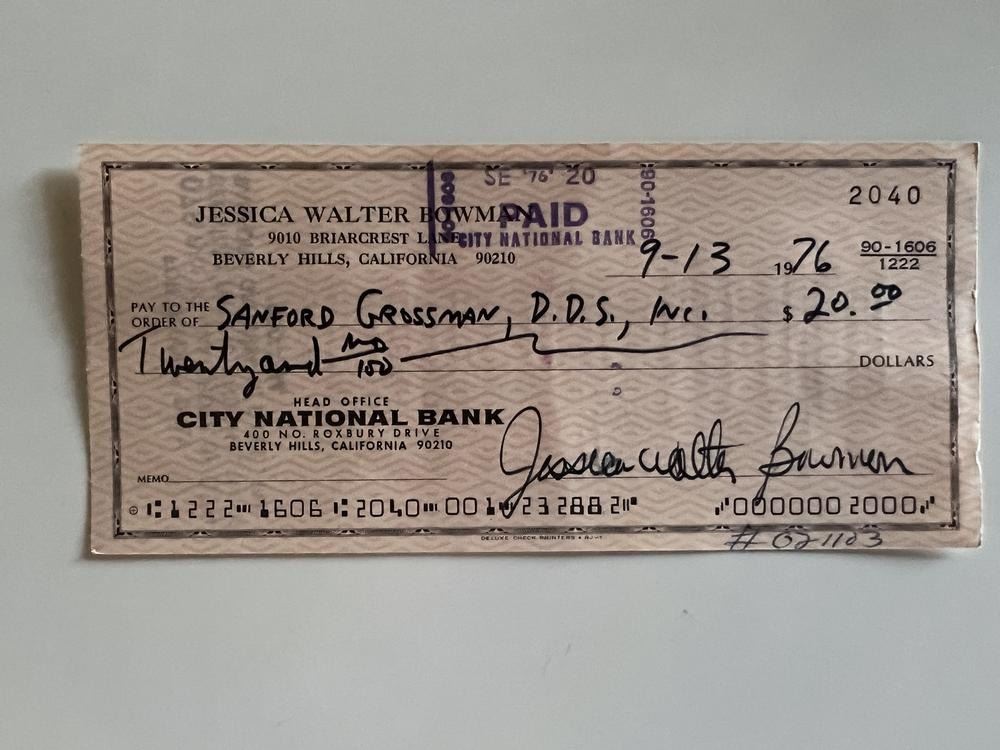 SE '76' 20
PAID
CITY NATIONAL BANK
90-1606
2040
JESSICA WALTER BOWMAN
9010 BRIARCREST LANE
BEVERLY HILLS, CALIFORNIA 90210
9-13 1976
90-1606
1222
PAY TO THE ORDER OF SANFORD GROSSMAN, D.D.S., INC. $ 20.00
Twenty and no/100 DOLLARS
HEAD OFFICE
CITY NATIONAL BANK
400 NO. ROXBURY DRIVE
BEVERLY HILLS, CALIFORNIA 90210
Jessica Walter Bowman
MEMO
⑆1222⑉1606⑆2040⑉001⑈232882⑈ ⑈0000002000⑈
DELUXE CHECK PRINTERS
# 021103